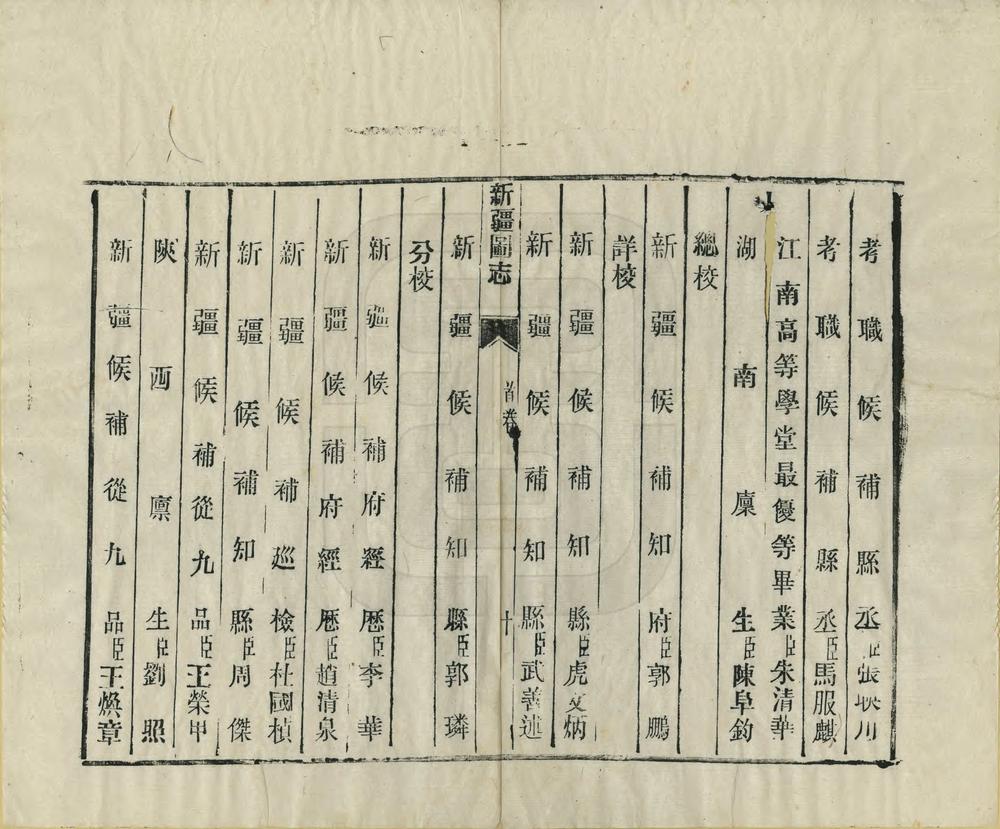 考職候補縣丞臣張映川
考職候補縣丞臣馬服麒
江南高等學堂最優等畢業臣朱清華
湖南廩生臣陳阜鈞
總校
新疆候補知府臣郭鵬
詳校
新疆候補知縣臣虎文炳
新疆候補知縣臣武善述
新疆圖志
首卷
十
新疆候補知縣臣郭璘
分校
新疆候補府經歷臣李華
新疆候補府經歷臣趙清泉
新疆候補巡檢臣杜國楨
新疆候補知縣臣周傑
新疆候補從九品臣王榮甲
陝西廩生臣劉照
新疆候補從九品臣王煥章